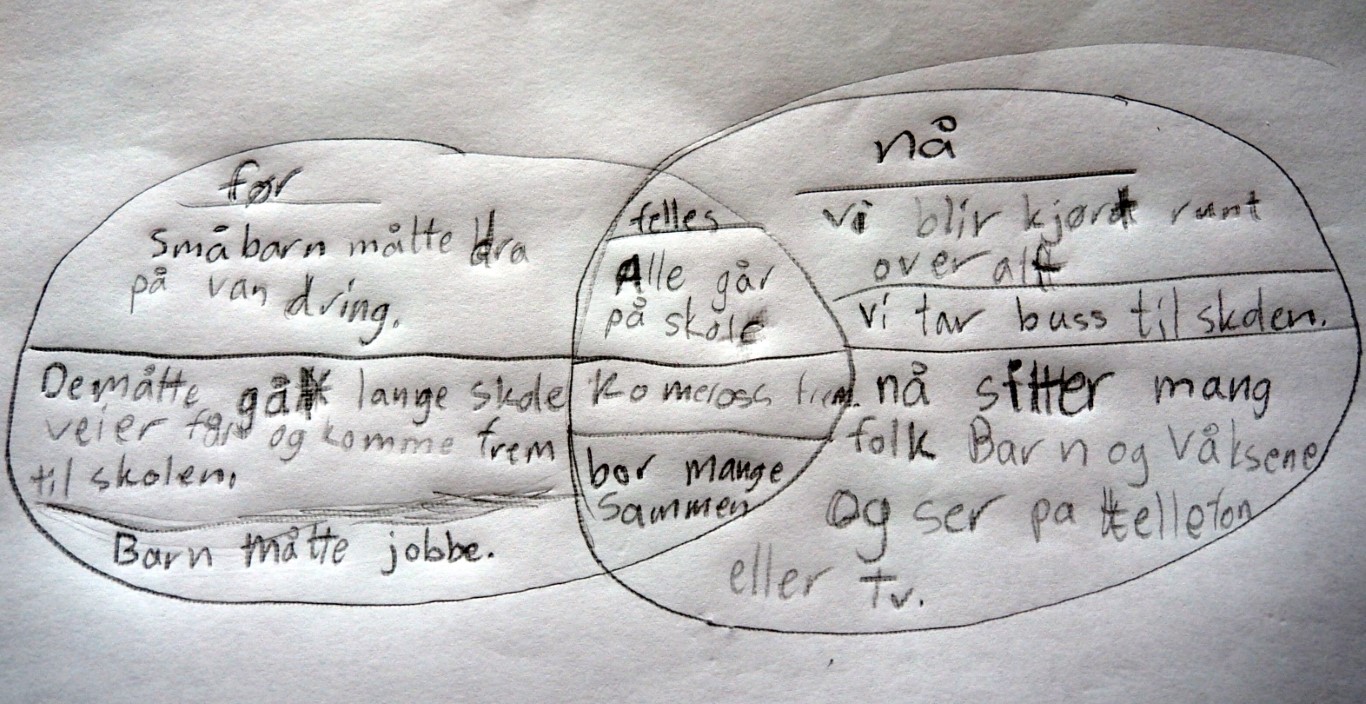 før
Småbarn måtte dra
på van dring.
De måtte gå lange skole
veier før og komme frem
til skolen.
Barn måtte jobbe.
felles
Alle går
på skole
Komeross frem.
bor mange
Sammen
nå
vi blir kjørt runt
over alt
vi tar buss til skolen.
nå sitter mang
folk Barn og Våksene
Og ser pa tellefon
eller Tv.